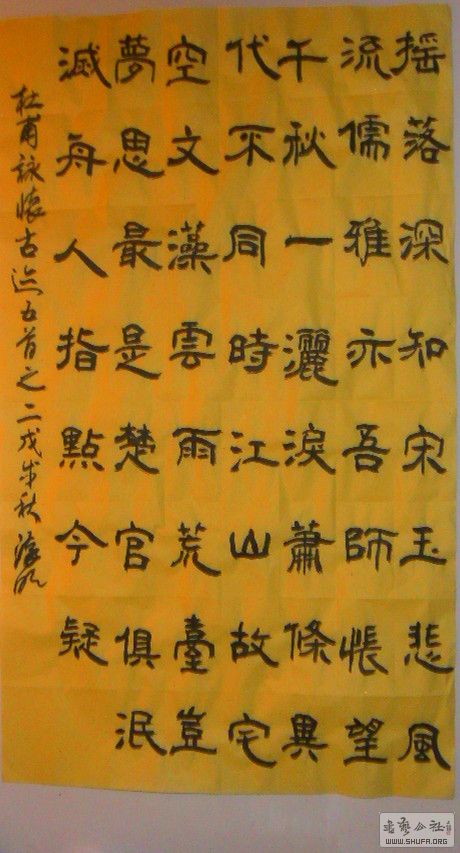 摇落深知宋玉悲風
流儒雅亦吾師悵望
千秋一灑淚蕭條異
代不同時江山故宅
空文藻雲雨荒臺豈
夢思最是楚官俱泯
滅舟人指點今疑
杜甫詠懷古迹五首之二戊秋
書藝公社
WWW.SHUFA.ORG